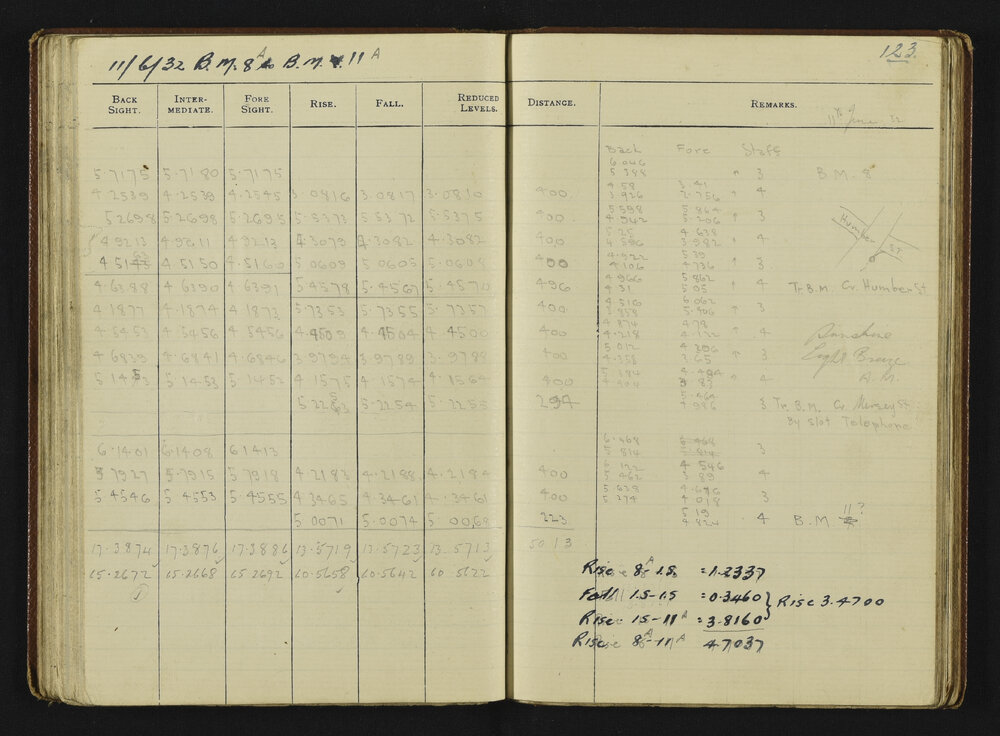 11/6/32 B.M. 8A to B.M. 11A
123
BACK SIGHT. INTER-MEDIATE. FORE SIGHT. RISE. FALL. REDUCED LEVELS. DISTANCE. REMARKS.
11th June 32
Back Fore Staff
6.046
5.7175 5.7180 5.7175 5.388 3 B.M. 8
4.58 3.41
4.2539 4.2539 4.2545 3.0816 3.0817 3.0810 400 3.926 2.756 4
5.598 5.864
5.2698 5.2698 5.2695 5.5373 5.5372 5.5375 400 4.942 5.206 3
5.25 4.638
4.9213 4.9211 4.9213 4.3079 4.3082 4.3082 400 4.596 3.982 4
Humber St.
4.5150 4.5160 5.0609 5.0605 5.0608 400 4.106 4.736 3
4.966 5.862
4.6388 4.6390 4.6391 5.4578 5.4567 5.4570 496 4.31 5.05 4 Tr. B.M. Cr. Humber St
4.516 6.062
4.1877 4.1874 4.1873 5.7353 5.7355 5.7357 400 3.858 5.406 3
4.874 4.78
4.5453 4.5456 4.5456 4.4509 4.4504 4.4500 400 4.218 4.122 4
Sunshine
5.012 4.306
4.6839 4.6841 4.6846 3.9794 3.9789 3.9788 400 4.358 3.65 3
Light Breeze
A.M.
5.1453 5.1453 5.1452 4.1575 4.1574 4.1564 400 3.83 4
5.464
5.2254 5.2255 294 4.986 3 Tr. B.M. Cr Mersey St.
By Slot Telephone
6.468 5.468
6.1401 6.1408 6.1413 5.814 5.814 3
6.122 4.546
5.7927 5.7915 5.7918 4.2183 4.2188 4.2184 400 5.462 3.89 4
5.4546 5.4553 5.4555 4.3465 4.3461 4.3461 400 5.274 4.018 3
5.19
5.0071 5.0074 5.0068 223 4.824 4 B.M. 11?
17.3874 17.3876 17.3886 13.5719 13.5723 13.5713 5013
15.2672 15.2668 15.2692 10.5658 10.5642 10.5622
Rise 8A-1.5 = 1.2337
Fall 1.5-1.5 = 0.3460
Rise 15-11A = 3.8160 } Rise 3.4700
Rise 8A-11A 4.7037